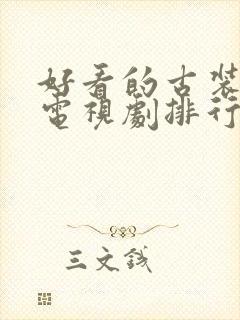 好看的古装
電視劇排行
三文錢